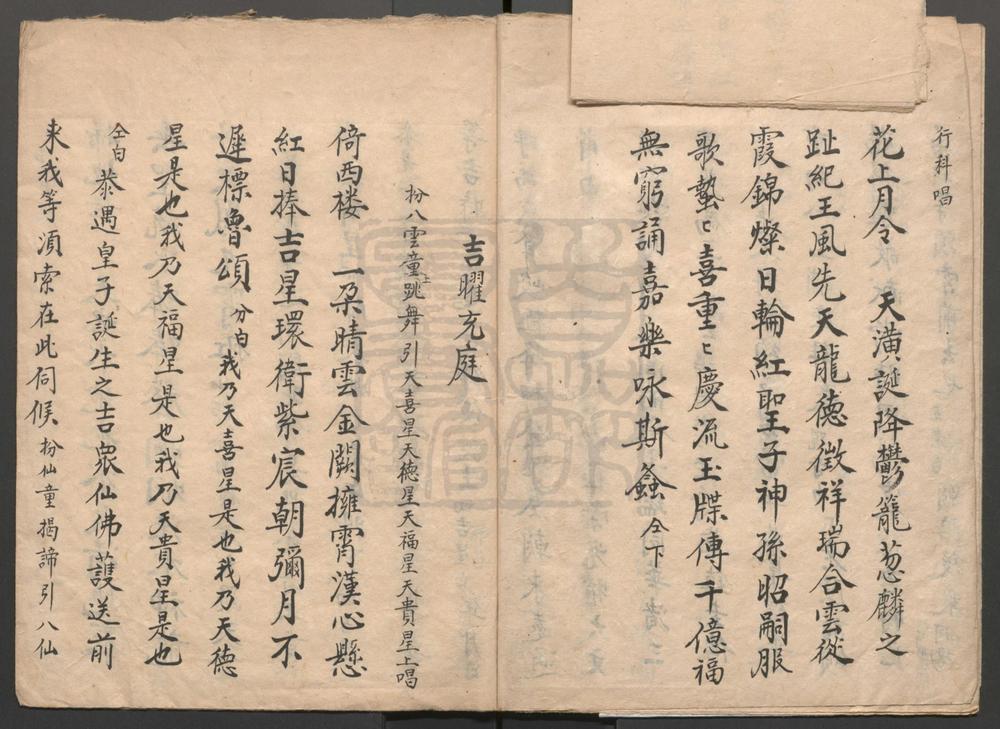 行科唱
花上月令　天潢誕降鬱籠葱麟之
趾紀王風先天龍德徵祥瑞合雲從
霞錦燦日輪紅聖子神孫昭嗣服
歌蟄〻喜重〻慶流玉牒傳千億福
無窮誦嘉樂咏斯螽仝下
吉曜充庭
扮八雲童上跳舞引天喜星天德星天福星天貴星上唱
倚西楼　一朵晴雲金闕擁霄漢心懸
紅日捧吉星環衛紫宸朝彌月不
遲標魯頌分白我乃天喜星是也我乃天德
星是也我乃天福星是也我乃天貴星是也
仝白恭遇皇子誕生之吉衆仙佛護送前
来我等須索在此伺候扮仙童揭諦引八仙